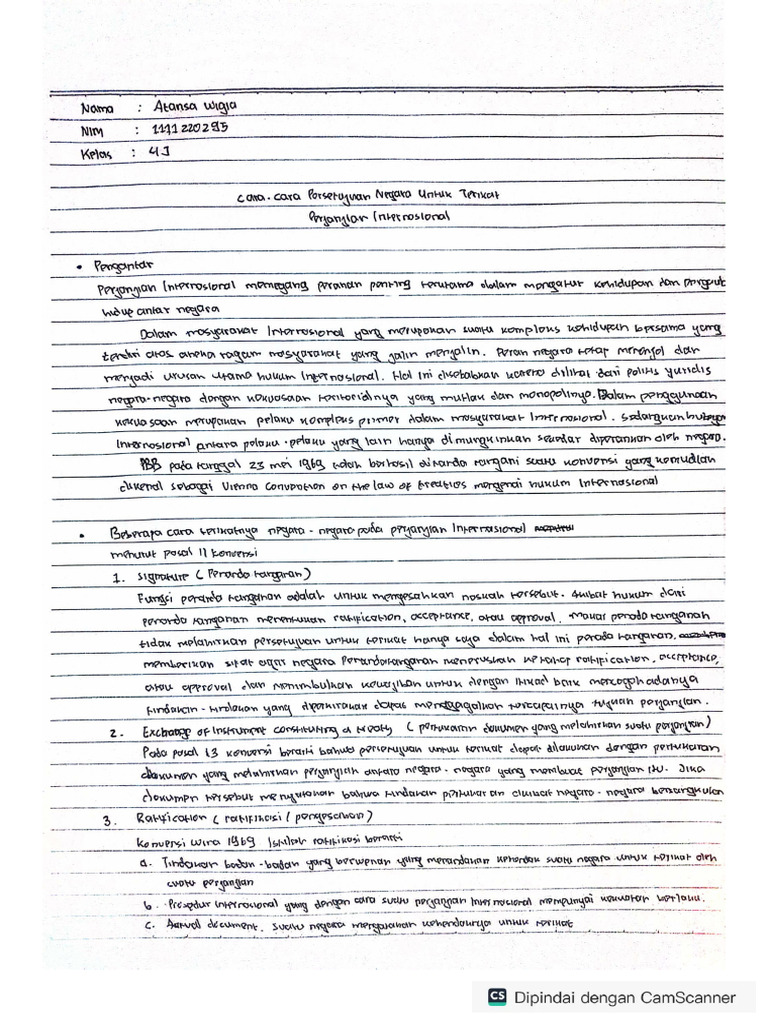 Nama : Atansa Wigia
NIM : 1111220295
Kelas : 4J
Cara-cara Persetujuan Negara Untuk Terikat
Perjanjian Internasional
• Pengantar
Perjanjian Internasional memegang peranan penting terutama dalam mengatur kehidupan dan
hidup antar negara
Dalam masyarakat Internasional yang merupakan suatu kompleks kehidupan bersama yang
terdiri atas aneka ragam masyarakat yang jalin menjalin. Peran negara tetap menonjol dan
menjadi urusan utama hukum Internasional. Hal ini disebabkan karena dilihat dari politis yuridis
negara-negara dengan kekuasaan teritorialnya yang mutlak dan monopolinya. Dalam penggunaan
kekuasaan merupakan pelaku kompleks primer dalam masyarakat Internasional. Sedangkan
Internasional antara pelaku-pelaku yang lain hanya dimungkinkan sekedar diperankan oleh negara.
PBB pada tanggal 23 mei 1969 telah berhasil ditanda tangani suatu konvensi yang kemudian
dikenal sebagai Vienna Convention on the law of treaties mengenai hukum Internasional
• Beberapa cara terikatnya negara-negara pada perjanjian Internasional
menurut pasal 11 konvensi
1. Signature (Penanda tanganan)
Fungsi penanda tanganan adalah untuk mengesahkan naskah tersebut. Akibat hukum dari
penanda tanganan menentukan ratification, acceptance, atau approval. Makna penada tanganan
tidak melahirkan persetujuan untuk terikat hanya saja dalam hal ini penada tanganan,
memberikan sifat agar negara Penandatanganan meneruskan ke tahap ratification, acceptance,
atau approval dan menimbulkan kewajiban untuk dengan itikad baik mencegah adanya
tindakan-tindakan yang diperkirakan dapat menggagalkan tercapainya tujuan perjanjian.
2. Exchange of Instrument constituting a treaty (pertukaran dokumen yang melahirkan suatu perjanjian)
Pada pasal 13 konvensi berarti bahwa persetujuan untuk terikat dapat dilakukan dengan pertukaran
dokumen yang melahirkan perjanjian antara negara-negara yang membuat perjanjian itu. Jika
dokumen tersebut menyatakan bahwa tindakan pertukaran diikat negara-negara bersangkutan
3. Ratification (ratifikasi / pengesahan)
Konvensi wina 1969 Istilah ratifikasi berarti
a. Tindakan badan-badan yang berwenang yang menandakan kehendak suatu negara untuk terikat oleh
suatu perjanjian
b. Prosedur Internasional yang dengan cara suatu perjanjian Internasional mempunyai kekuatan berlaku.
c. Aktual document, suatu negara mengesahkan kehendaknya untuk terikat
CS Dipindai dengan CamScanner